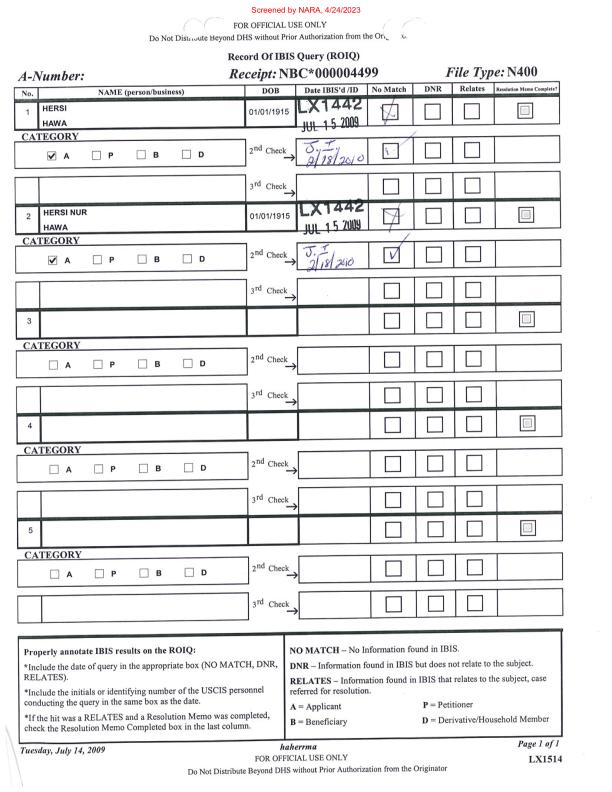 Screened by NARA, 4/24/2023
FOR OFFICIAL USE ONLY
Do Not Distribute Beyond DHS without Prior Authorization from the
Record Of IBIS Query (ROIQ)
A-Number: Receipt: NBC*000004499 File Type: N400
No. NAME (person/business) DOB Date IBIS'd /ID No Match DNR Relates Resolution Memo Complete?
1 HERSI HAWA 01/01/1915 LX1442 JUL 15 2009
CATEGORY
A P B D 2nd Check J.I. 2/18/2010
3rd Check
2 HERSI NUR HAWA 01/01/1915 LX1442 JUL 15 2009
CATEGORY
A P B D 2nd Check J.I 2/18/2010
3rd Check
3
CATEGORY
A P B D 2nd Check
3rd Check
4
CATEGORY
A P B D 2nd Check
3rd Check
5
CATEGORY
A P B D 2nd Check
3rd Check
Properly annotate IBIS results on the ROIQ:
*Include the date of query in the appropriate box (NO MATCH, DNR,
RELATES).
*Include the initials or identifying number of the USCIS personnel
conducting the query in the same box as the date.
*If the hit was a RELATES and a Resolution Memo was completed,
check the Resolution Memo Completed box in the last column.
NO MATCH – No Information found in IBIS.
DNR – Information found in IBIS but does not relate to the subject.
RELATES – Information found in IBIS that relates to the subject, case
referred for resolution.
A = Applicant P = Petitioner
B = Beneficiary D = Derivative/Household Member
Tuesday, July 14, 2009 haherrma Page 1 of 1
FOR OFFICIAL USE ONLY LX1514
Do Not Distribute Beyond DHS without Prior Authorization from the Originator